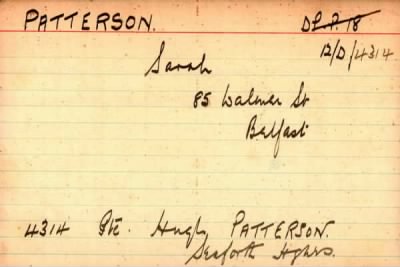 PATTERSON.
D.P. 18
12/D/4314
Sarah
85 Walmer St
Belfast
4314 Pte. Hugh PATTERSON.
Seaforth Hghrs.